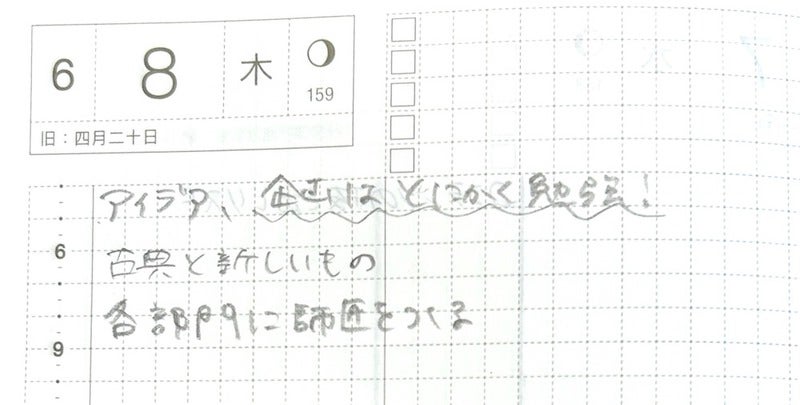 6 8 木 159
旧：四月二十日
アイデア、企画はとにかく勉強！
6
古典と新しいもの
各部門に師匠をつくる
9